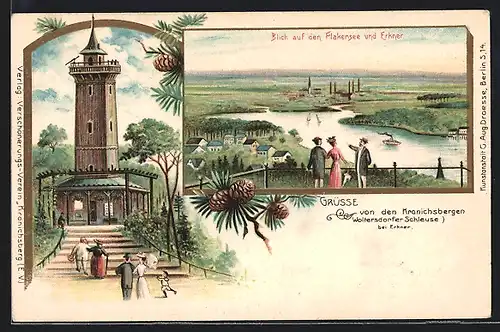 Blick auf den Flakensee und Erkner
Verlag: Verschönerungs-Verein „Kranichsberg (E.V.)
Kunstanstalt G. Aug. Droesse, Berlin S. 14.
GRÜSSE
von den Kranichsbergen
Woltersdorfer Schleuse)
bei Erkner.